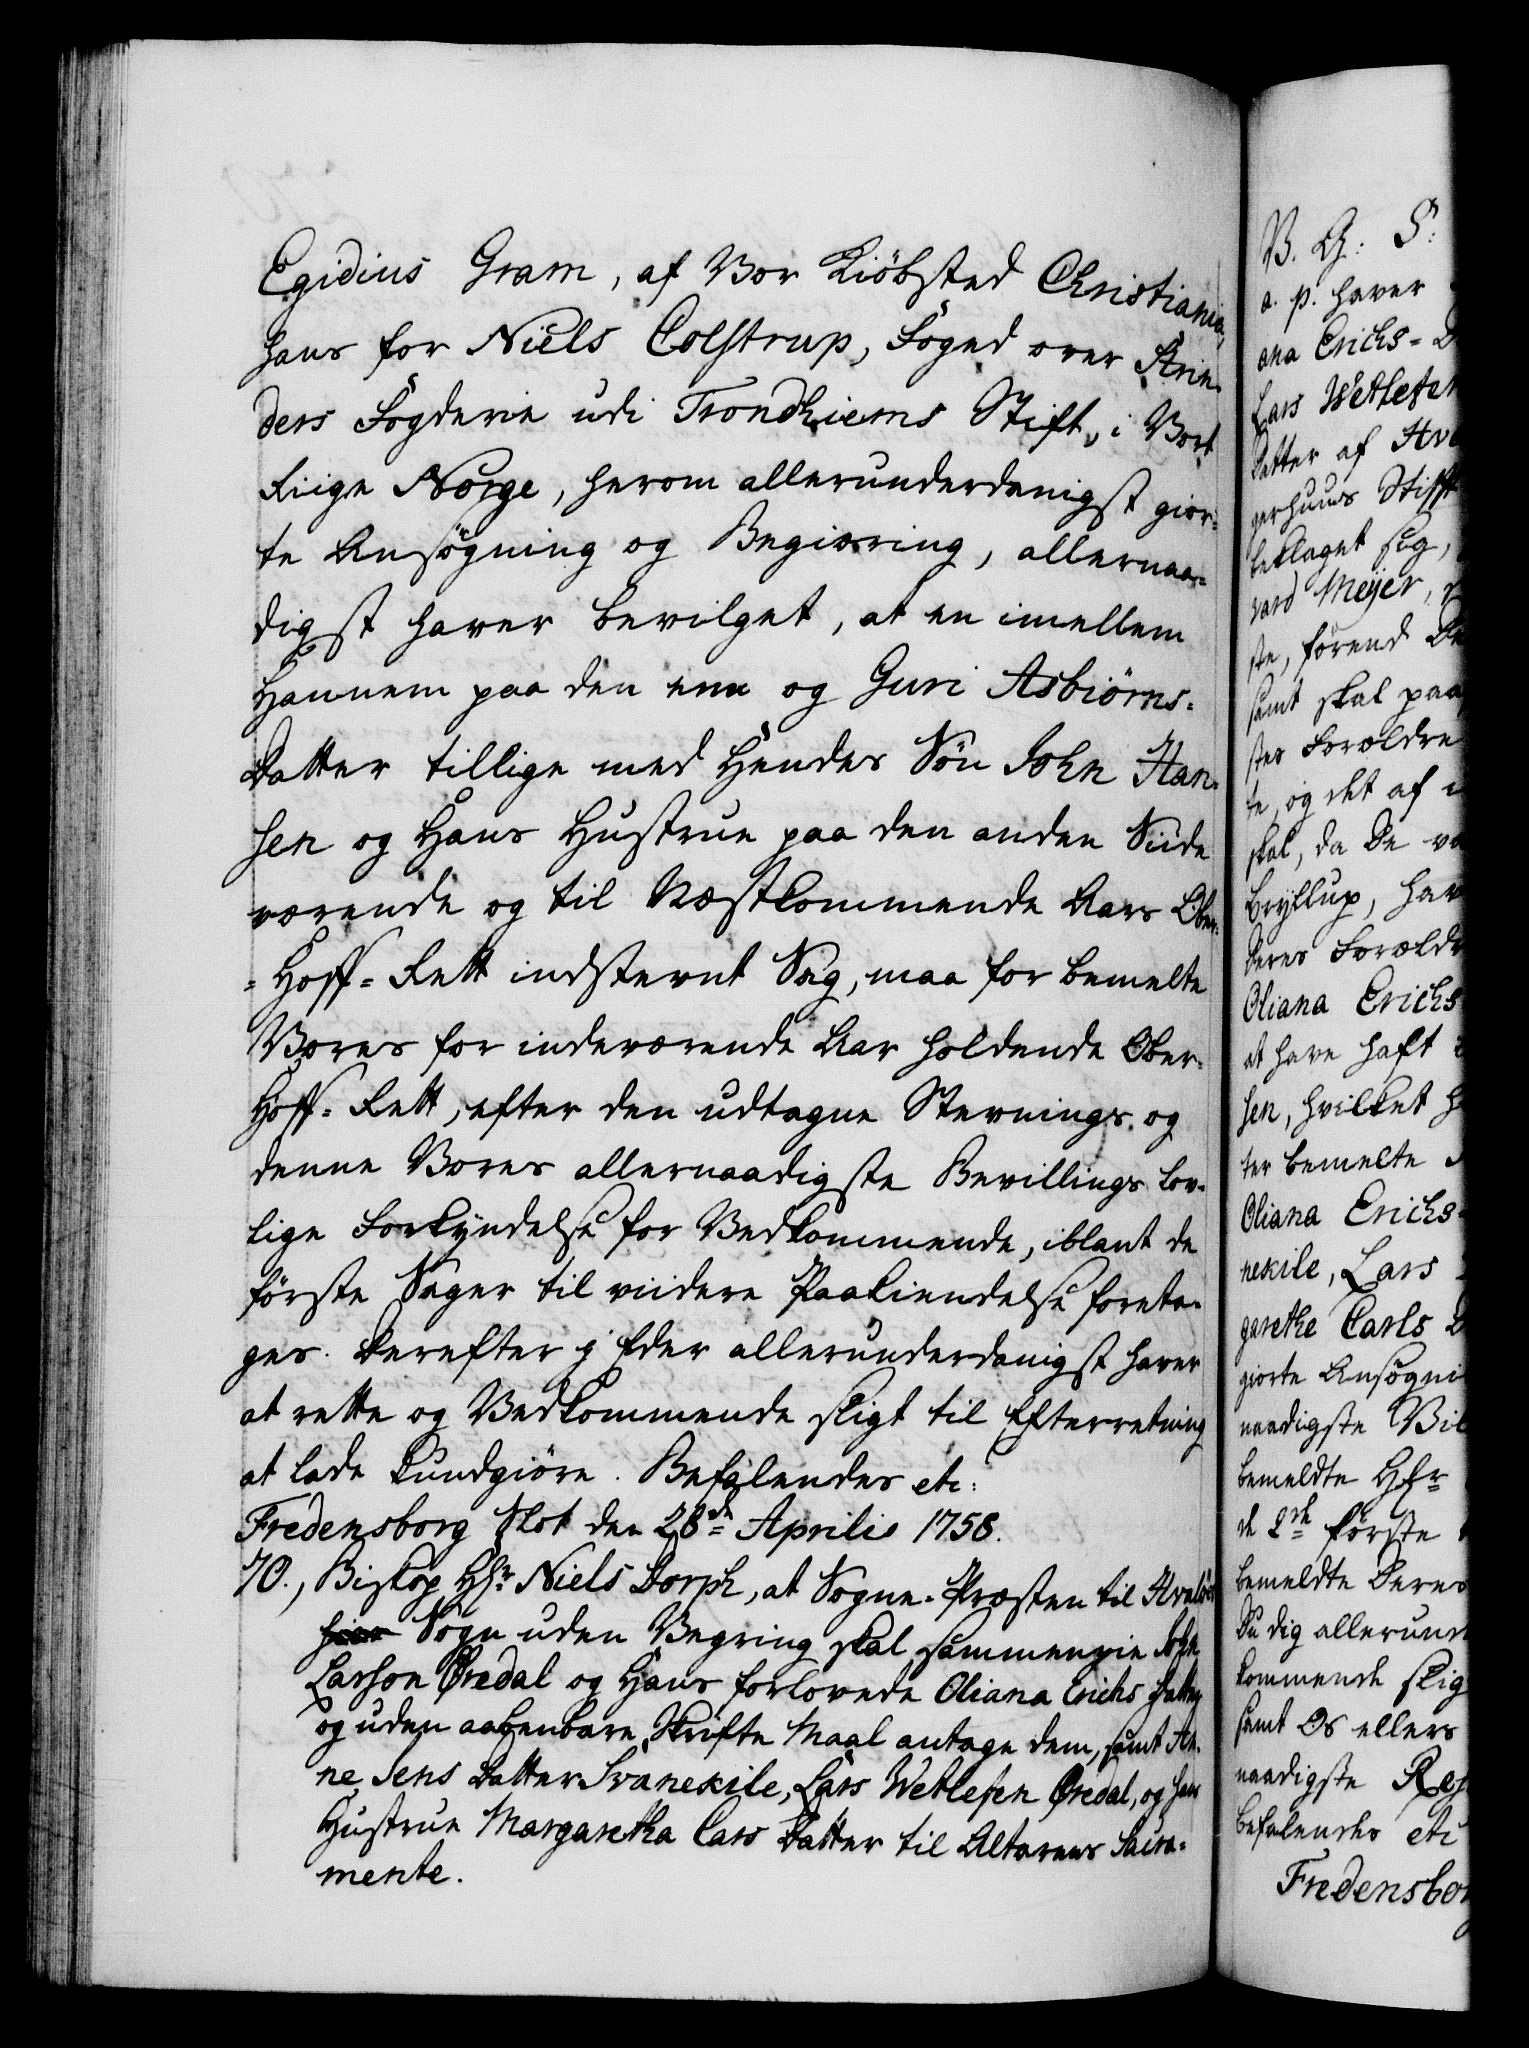 Egidius Gram, af Vor Kiöbsted Christiania,
hans for Niels Colstrup, Foged over Strin-
ders Fogderie udi Trondhiems Stift, i Vort
Riige Norge, herom allerunderdanigst gior-
te Ansøgning og Begiæring, allernaa-
digst haver bevilget, at en imellem
Hannem paa den ene og Guri Asbiörns-
Datter tillige med Hendes Sön John Han-
sen og Hans Hustrue paa den anden Siide
værende og til Næstkommende Aars Ober-
=Hoff=Rett indstevnt Sag, maa for bemelte
Vores for indeværende Aar holdende Ober-
Hoff=Rett, efter den udtagne Stevnings og
denne Vores allernaadigste Bevillings lov-
lige Forkyndelse for Vedkommende, iblant de
förste Sager til viidere Paakiendelse foreta-
ges. Derefter j Eder allerunderdanigst haver
at rette og Vedkommende sligt til Efterretning
at lade kundgiöre. Befalendes etc:
Fredensborg Slot den 28de Aprilis 1758.
70., Biskop Hr Niels Dorph, at Sogne-Præsten til Hvalöer
Sogn uden Vegring skal sammenvie John
Larsson Öredal og Hans forlovede Oliana Erichs Datter,
og uden aabenbare Skrifte Maal antage dem, samt An-
ne Jens Datter Svanekile, Lars Wetlesen Öredal, og hans
Hustrue Margaretha Cars Datter til Altarens Sacra-
mente.
V. G: S:
a. p. haver
ana Erichs-D
Lars Wetlesen
Datter af Hva
gerhuus Stift
beklaget sig,
vard Meÿer,
ste, förend De
samt skal paa
stes Forældre
te, og det af
skal, da De va
Bryllup, hav
deres Forældr
Oliana Erichs
at have haft
sen, hvilket h
ter bemelte
Oliana Erichs-
nekile, Lars
garethe Carls D
giorte Ansøgni
naadigste Vil
bemeldte Hr
de 2de förste
bemeldte Deres
Du dig allerund
kommende slig
samt Os ellers
naadigste Res
befalendes etc
Fredensbor